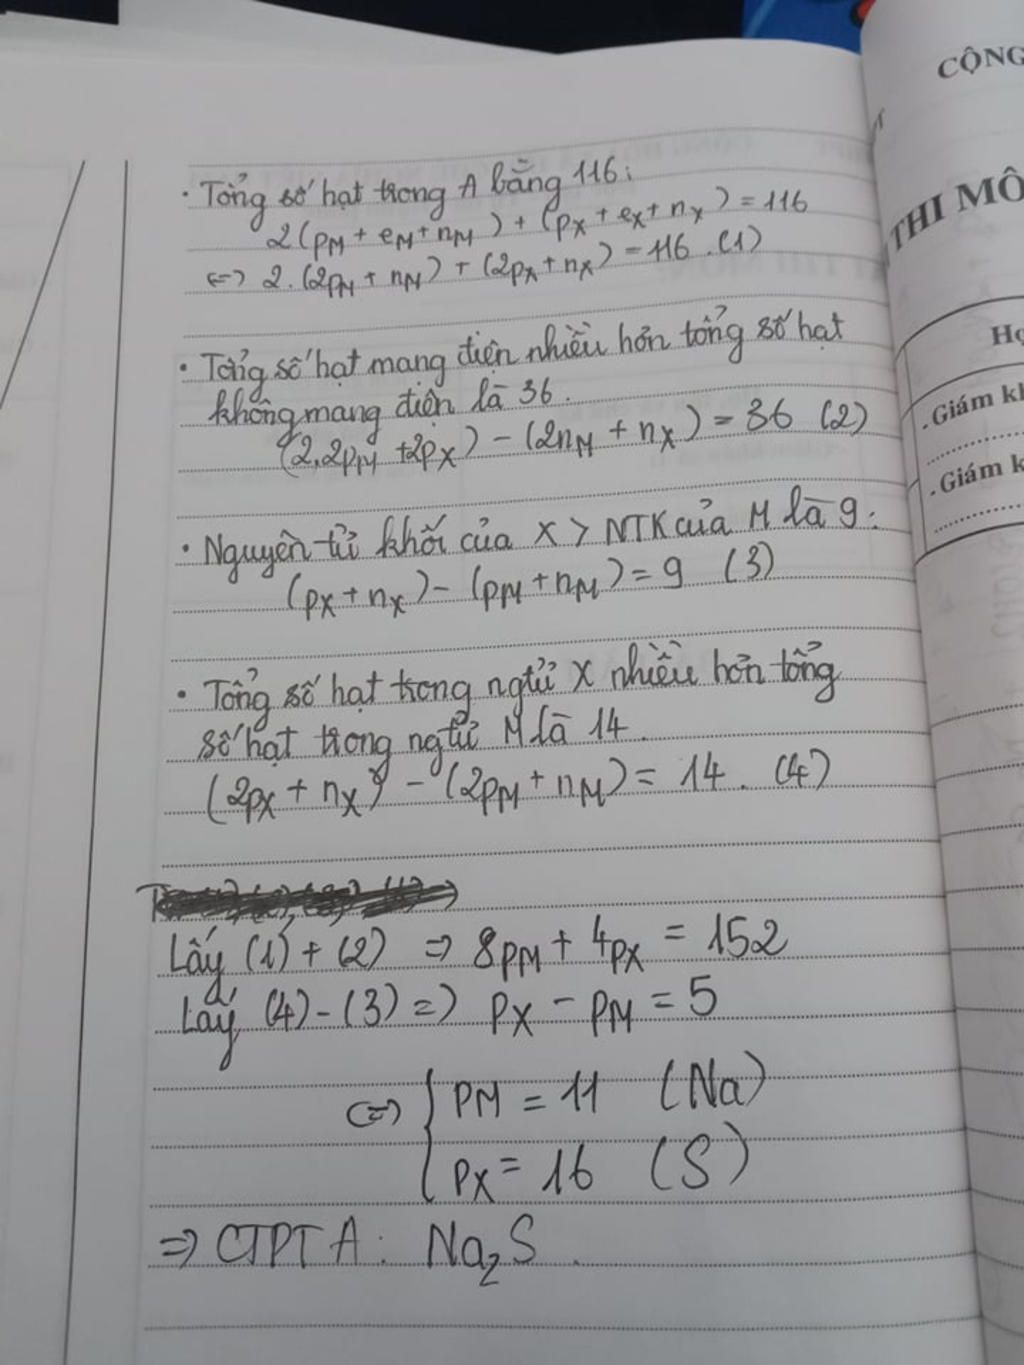 · Tổng số hạt trong A bằng 116:
2(pM + eM + nM) + (pX + eX + nX) = 116
<=> 2.(2pM + nM) + (2pX + nX) = 116 (1)
· Tổng số hạt mang điện nhiều hơn tổng số hạt
không mang điện là 36.
(2.2pM + 2pX) - (2nM + nX) = 36 (2)
· Nguyên tử khối của X > NTK của M là 9:
(pX + nX) - (pM + nM) = 9 (3)
· Tổng số hạt trong ngtử X nhiều hơn tổng
số hạt trong ngtử M là 14.
(2pX + nX) - (2pM + nM) = 14. (4)
Lấy (1) + (2) => 8pM + 4pX = 152
Lấy (4) - (3) => pX - pM = 5
<=> { pM = 11 (Na)
pX = 16 (S)
=> CTPT A: Na2S.
CỘNG
THI MÔ
Họ
.Giám k
.Giám k